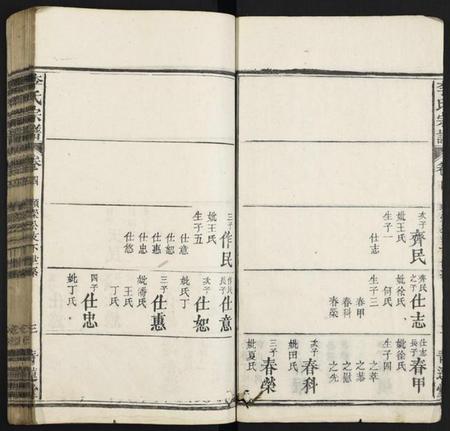 李氏宗譜
卷
次子
齊民
妣王氏
生子一
仕志
齊民
之子
仕志
妣徐氏
何氏
生子三
春甲
春科
春榮
仕志
長子
春甲
妣徐氏
生子四
之莘
之慰
之先
次子
春科
妣田氏
三子
春榮
妣夏氏
三子
作民
妣王氏
生子五
仕意
仕恕
仕惠
仕忠
仕悠
作民
長子
仕意
次子
仕恕
妣丁氏
三子
仕惠
妣潘氏
王氏
丁氏
四子
仕忠
妣丁氏
李氏宗譜
卷四
三
青蓮堂